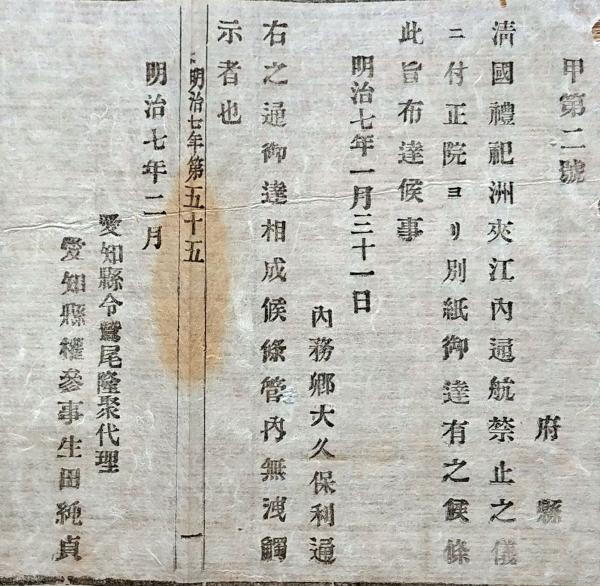 甲第二號
府縣
淸國禮祀洲夾江內通航禁止之儀
ニ付正院ヨリ別紙御達有之候條
此旨布達候事
明治七年一月三十一日
內務卿大久保利通
右之通御達相成候條管內無洩觸
示者也
明治七年第五十五
一
明治七年二月
愛知縣令鷲尾隆聚代理
愛知縣權參事生田純貞